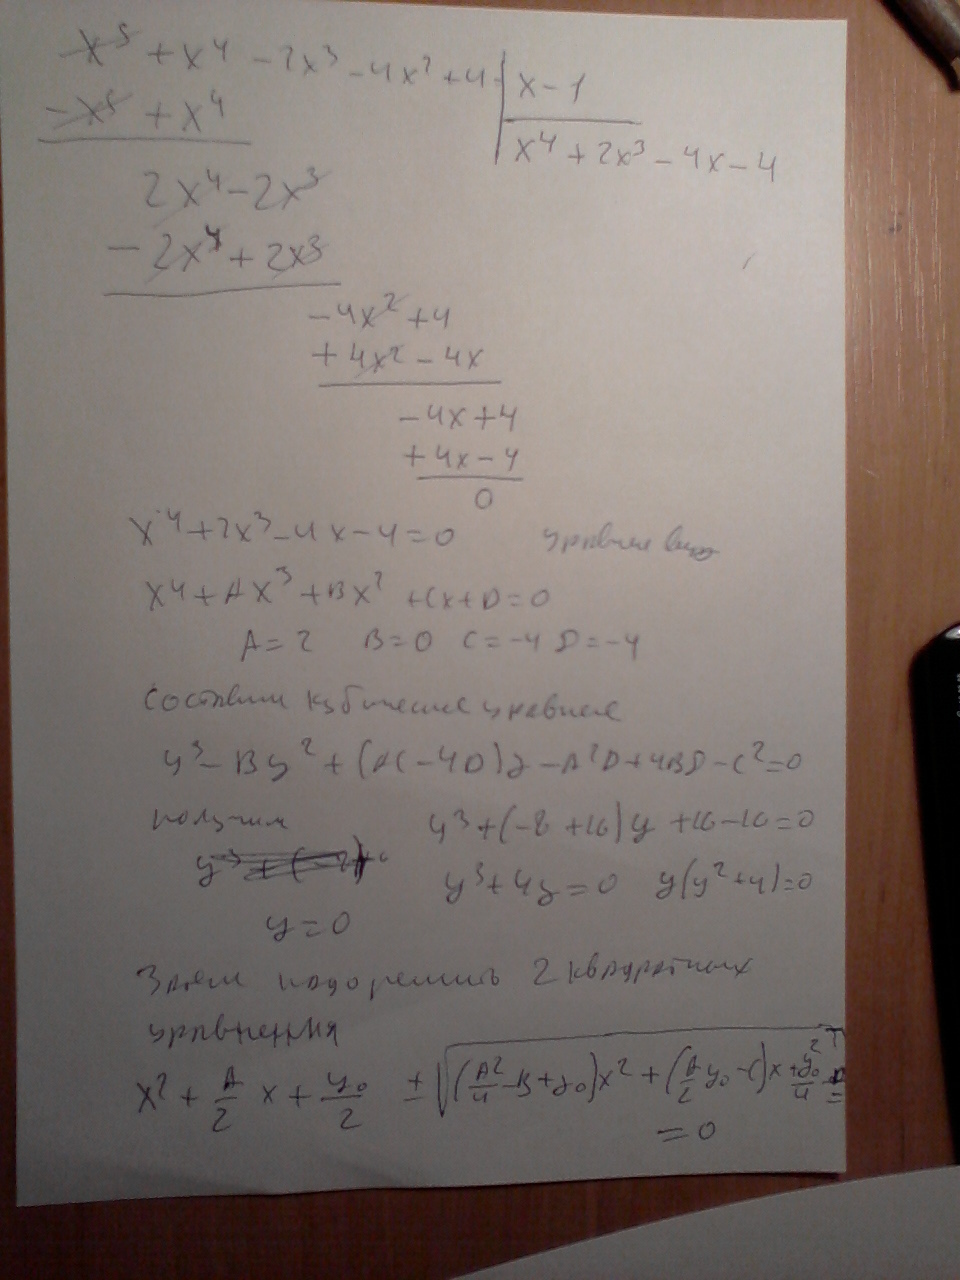 x⁵ + x⁴ - 2x³ - 4x² + 4 | x - 1
- x⁵ + x⁴
x⁴ + 2x³ - 4x - 4
2x⁴ - 2x³
- 2x⁴ + 2x³
- 4x² + 4
+ 4x² - 4x
- 4x + 4
+ 4x - 4
0
x⁴ + 2x³ - 4x - 4 = 0
x⁴ + Ax³ + Bx² + Cx + D = 0
A = 2 B = 0 C = -4 D = -4
Составим кубическое уравнение
y³ - By² + (AC - 4D)y - A²D + 4BD - C² = 0
получим y³ + (-8 + 16)y + 16 - 16 = 0
y³ + 4y = 0 y(y² + 4) = 0
y = 0
Затем надо решить 2 квадратных
уравнения
x² + A/2 x + y₀/2 ± √((A²/4 - B + y₀)x² + (A/2 y₀ - C)x + y₀²/4 - D) =
= 0